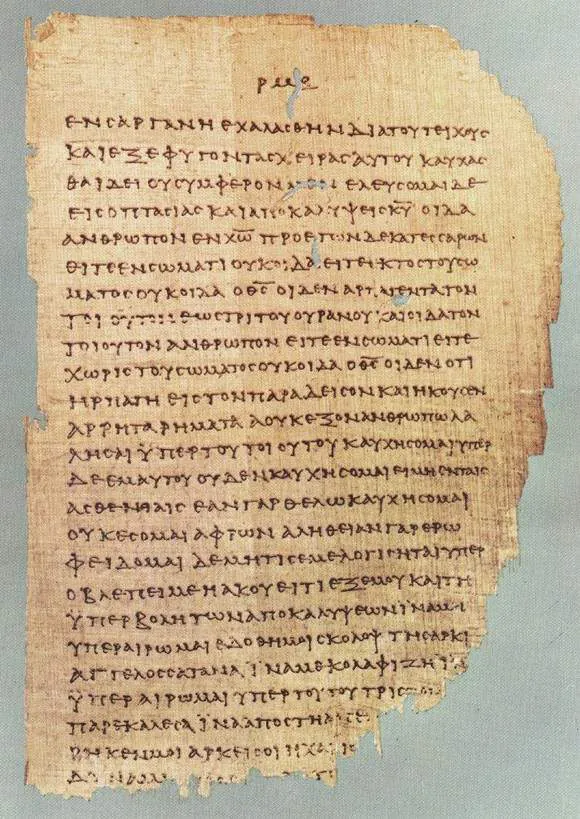 ρμε
ΕΝ ϹΑΡΓΑΝΗ ΕΧΑΛΑϹΘΗΝ ΔΙΑ ΤΟΥ ΤΕΙΧΟΥϹ
ΚΑΙ ΕΞΕΦΥΓΟΝ ΤΑϹ ΧΕΙΡΑϹ ΑΥΤΟΥ ΚΑΥΧΑϹ
ΘΑΙ ΔΕΙ ΟΥ ϹΥΜΦΕΡΟΝ ΜΕΝ ΕΛΕΥϹΟΜΑΙ ΔΕ
ΕΙϹ ΟΠΤΑϹΙΑϹ ΚΑΙ ΑΠΟΚΑΛΥΨΕΙϹ Κ̅Υ̅ ΟΙΔΑ
ΑΝΘΡΩΠΟΝ ΕΝ Χ̅Ω̅ ΠΡΟ ΕΤΩΝ ΔΕΚΑΤΕϹϹΑΡΩΝ
ΕΙΤΕ ΕΝ ϹΩΜΑΤΙ ΟΥΚ ΟΙΔΑ ΕΙΤΕ ΕΚΤΟϹ ΤΟΥ ϹΩ
ΜΑΤΟϹ ΟΥΚ ΟΙΔΑ Ο Θ̅Ϲ̅ ΟΙΔΕΝ ΑΡΠΑΓΕΝΤΑ ΤΟΝ
ΤΟΙΟΥΤΟΝ ΕΩϹ ΤΡΙΤΟΥ ΟΥΡΑΝΟΥ ΚΑΙ ΟΙΔΑ ΤΟΝ
ΤΟΙΟΥΤΟΝ ΑΝΘΡΩΠΟΝ ΕΙΤΕ ΕΝ ϹΩΜΑΤΙ ΕΙΤΕ
ΧΩΡΙϹ ΤΟΥ ϹΩΜΑΤΟϹ ΟΥΚ ΟΙΔΑ Ο Θ̅Ϲ̅ ΟΙΔΕΝ ΟΤΙ
ΗΡΠΑΓΗ ΕΙϹ ΤΟΝ ΠΑΡΑΔΕΙϹΟΝ ΚΑΙ ΗΚΟΥϹΕΝ
ΑΡΡΗΤΑ ΡΗΜΑΤΑ Α ΟΥΚ ΕΞΟΝ ΑΝΘΡΩΠΩ ΛΑ
ΛΗϹΑΙ ΫΠΕΡ ΤΟΥ ΤΟΙΟΥΤΟΥ ΚΑΥΧΗϹΟΜΑΙ ΥΠΕΡ
ΔΕ ΕΜΑΥΤΟΥ ΟΥΔΕΝ ΚΑΥΧΗϹΟΜΑΙ ΕΙ ΜΗ ΕΝ ΤΑΙϹ
ΑϹΘΕΝΙΑΙϹ ΕΑΝ ΓΑΡ ΘΕΛΩ ΚΑΥΧΗϹΟΜΑΙ
ΟΥΚ ΕϹΟΜΑΙ ΑΦΡΩΝ ΑΛΗΘΕΙΑΝ ΓΑΡ ΕΡΩ
ΦΕΙΔΟΜΑΙ ΔΕ ΜΗ ΤΙϹ ΕΜΕ ΛΟΓΙϹΗΤΑΙ ΥΠΕΡ
Ο ΒΛΕΠΕΙ ΜΕ Η ΑΚΟΥΕΙ ΤΙ ΕΞ ΕΜΟΥ ΚΑΙ ΤΗ
ΫΠΕΡΒΟΛΗ ΤΩΝ ΑΠΟΚΑΛΥΨΕΩΝ ΪΝΑ ΜΗ
ΥΠΕΡΑΙΡΩΜΑΙ ΕΔΟΘΗ ΜΟΙ ϹΚΟΛΟΨ ΤΗ ϹΑΡΚΙ
ΑΓΓΕΛΟϹ ϹΑΤΑΝΑ ΪΝΑ ΜΕ ΚΟΛΑΦΙΖΗ ΪΝ
ΫΠΕΡΑΙΡΩΜΑΙ ΥΠΕΡ ΤΟΥΤΟΥ ΤΡΙϹ
ΠΑΡΕΚΑΛΕϹΑ ΪΝΑ ΑΠΟϹΤΗ Α
ΡΗΚΕΝ ΜΟΙ ΑΡΚΕΙ ϹΟΙ Η ΧΑΡΙϹ
ΔΥΝΑΜ